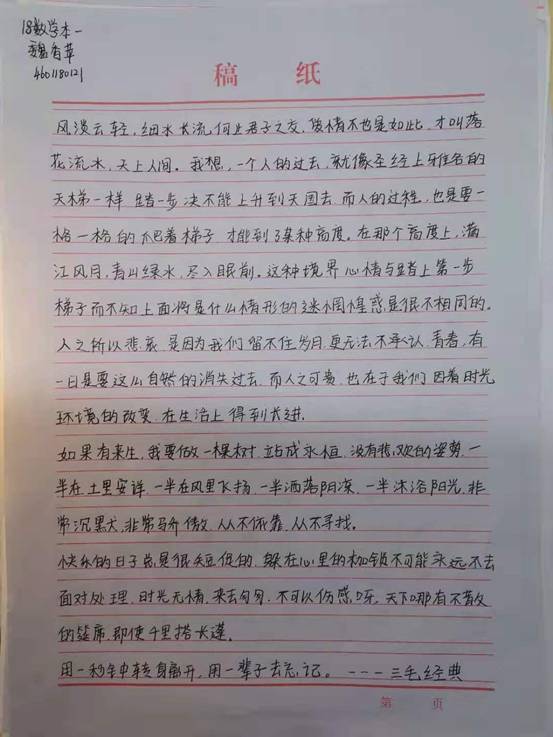 18数学本一
魏香草
460118012
稿 纸
风淡云轻,细水长流何止君子之交,爱情不也是如此,才叫落
花流水,天上人间。我想,一个人的过去,就像圣经上雅各的
天梯一样 踏一步决不能上升到天国去,而人的过程,也是要一
格一格的爬着梯子 才能到了某种高度。在那个高度上,满
江风月,青山绿水,尽入眼前。这种境界心情与踏上第一步
梯子而不知上面将是什么情形的迷惘惶惑是很不相同的。
人之所以悲哀,是因为我们留不住岁月,更无法不承认,青春,有
一日是要这么自然的消失过去,而人之可贵,也在于我们 因着时光
环境的改变,在生活上得到长进.
如果有来生,我要做一棵树,站成永恒,没有悲欢的姿势,一
半在土里安详,一半在风里飞扬,一半洒落阴凉,一半沐浴阳光,非
常沉默,非常骄傲,从不依靠,从不寻找。
快乐的日子总是很短促的,躲在心里的枷锁不可能永远不去
面对处理,时光无情,来去匆匆,不可以伤感呀,天下哪有不散
的筵席,即使千里搭长蓬。
用一秒钟转身离开,用一辈子去忘记。----三毛经典
第 页